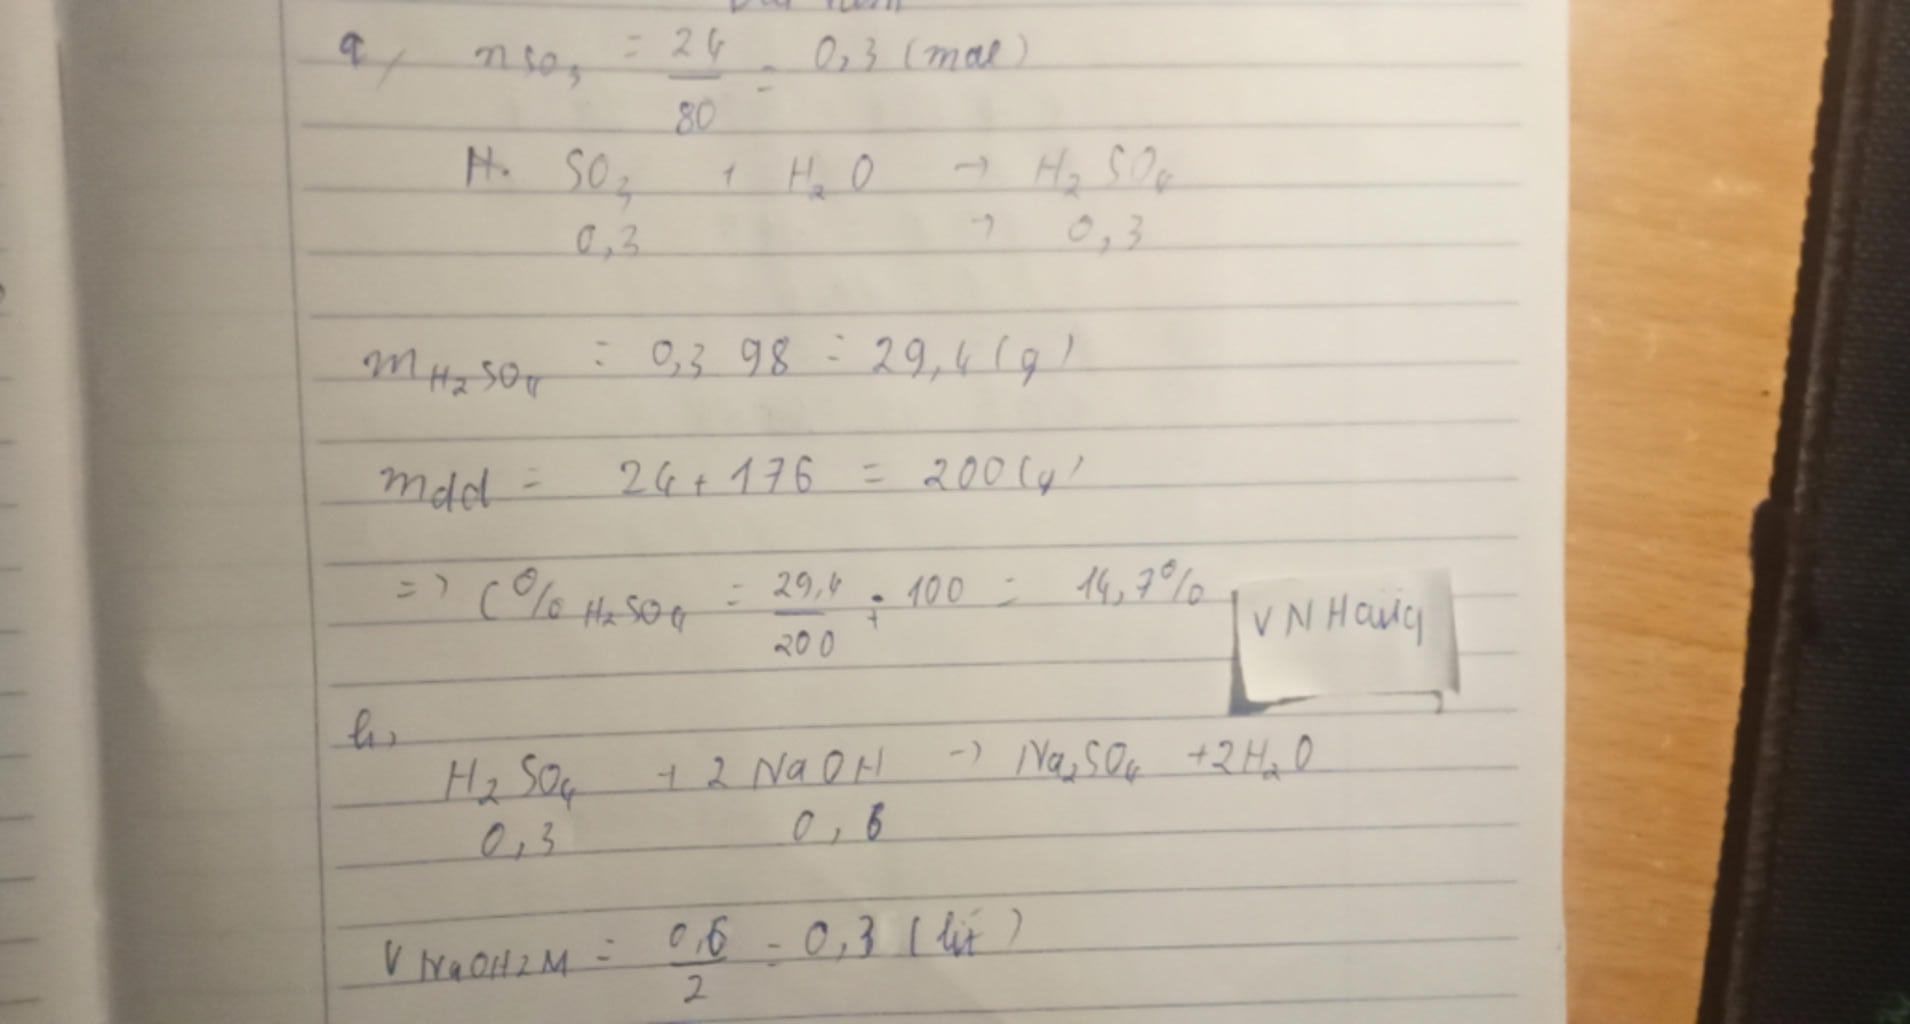 a, nSO3 = 24/80 = 0,3 (mol)
H. SO3 + H2O → H2SO4
0,3 → 0,3
mH2SO4 = 0,3 98 = 29,4 (g)
mdd = 24 + 176 = 200 (g)
=> C% H2SO4 = 29,4/200 . 100 = 14,7%
VN Hằng
b,
H2SO4 + 2 NaOH → Na2SO4 + 2H2O
0,3 0,6
V NaOH 2M = 0,6/2 = 0,3 (lít)